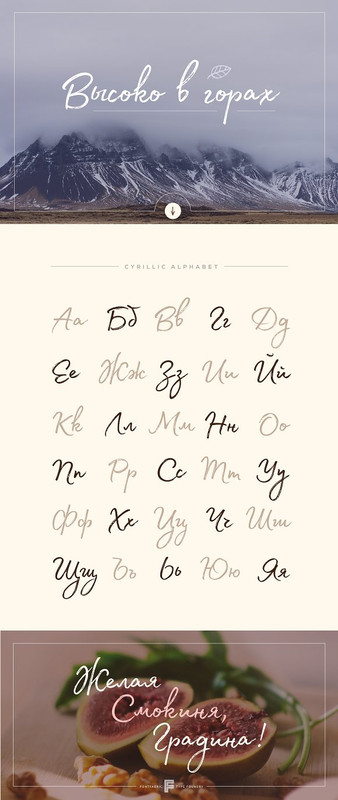 Высоко в горах
CYRILLIC ALPHABET
Аа Бб Вв Гг Дд
Ее Жж Зз Ии Йй
Кк Лл Мм Нн Оо
Пп Рр Сс Тт Уу
Фф Хх Цц Чч Шш
Щщ Ъъ Ьь Юю Яя
Желая
Смокиня,
Градина!